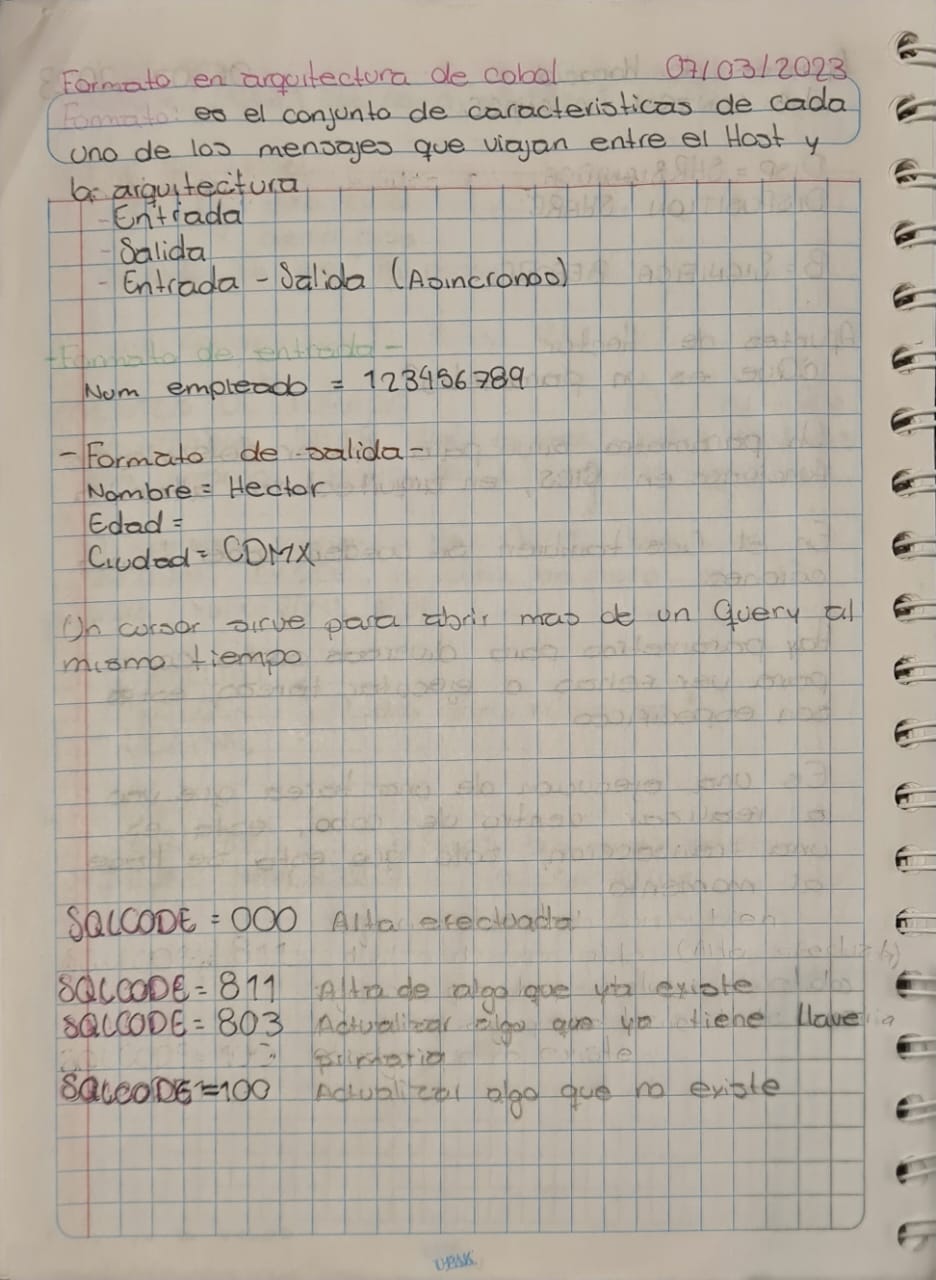 Formato en arquitectura de cobol 07/03/2023
Formato: es el conjunto de caracteristicas de cada
uno de los mensajes que viajan entre el Host y
la arquitectura
- Entrada
- Salida
- Entrada - Salida (Asincronos)
- Formato de entrada -
Num empleado = 123456789
- Formato de salida -
Nombre = Hector
Edad =
Ciudad = CDMX
Un cursor sirve para abrir mas de un Query al
mismo tiempo
SQLCODE = 000 Alta efectuada
SQLCODE = 811 Alta de algo que ya existe
SQLCODE = 803 Actualizar algo que ya tiene llave
primaria
SQLCODE = 100 Actualizar algo que no existe